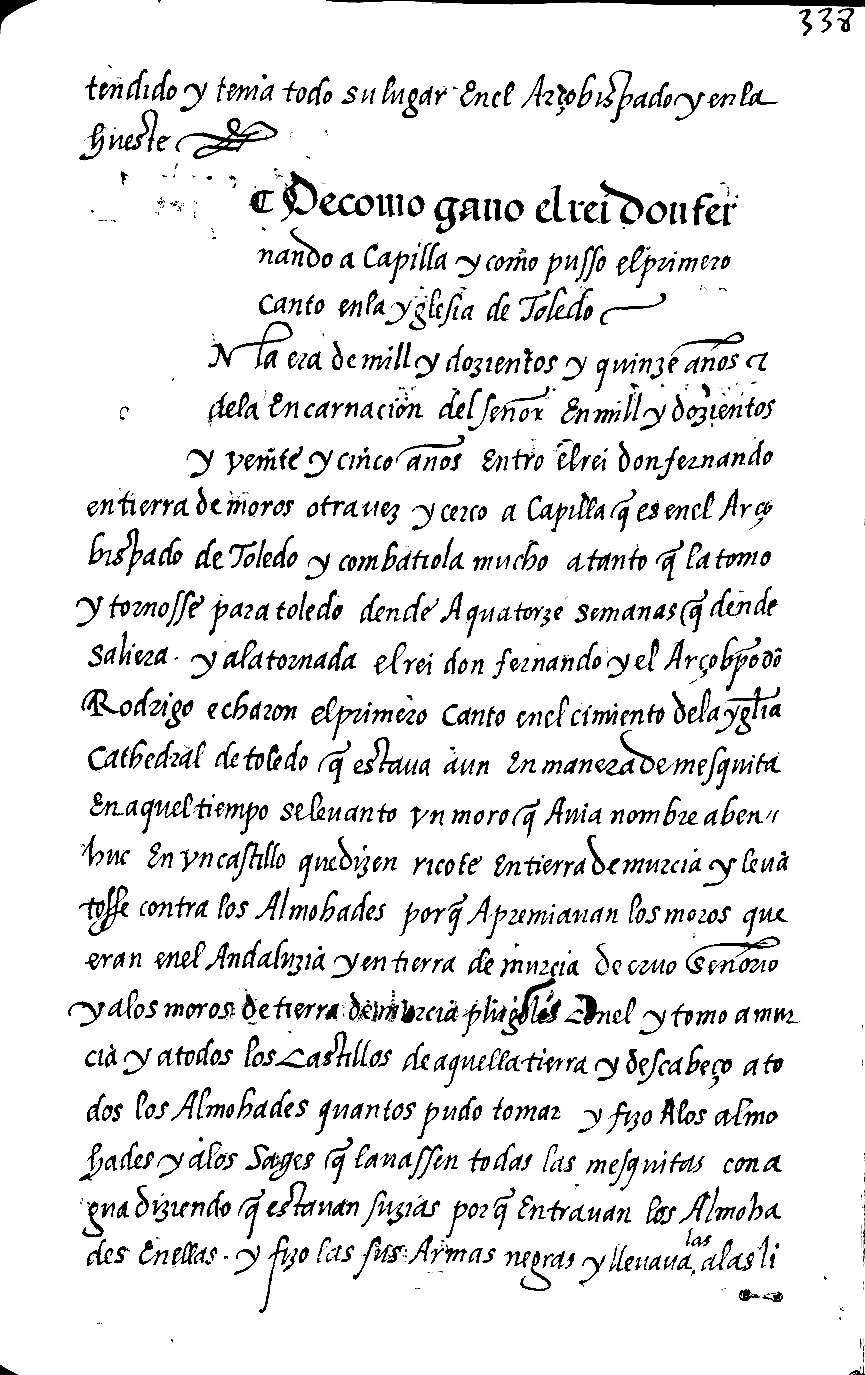 338
tendido y tenia todo su lugar Enel Arçobispado y en la
hueste
De como gano el rei don fer
nando a Capilla y como pusso el primero
Canto en la yglesia de Toledo
N la era de mill y dozientos y quinze años
dela Encarnaciōn del señor En mill y dozientos
y veinte y cinco años Entro el rei don fernando
en tierra de moros otra uez y cerco a Capilla q̄ es enel Arço
bispado de Toledo y combatiola mucho a tanto q̄ la tomo
y tornosse para toledo dende A quatorze semanas q̄ dende
Saliera. y a la tornada el rei don fernando y el Arçobp̄o dō
Rodrigo echaron el primero Canto enel cimiento dela ygl̄ia
Cathedral de toledo q̄ estaua aun En manera de mesquita
En aquel tiempo se leuanto vn moro q̄ Auia nombre aben
huc En vn castillo que dizen ricote En tierra de murcia y leuā
tosse contra los Almohades porq̄ Apremiauan los moros que
eran enel Andaluzia y en tierra de murcia de cruo Señorio
y a los moros de tierra de murcia plugoles Conel y tomo a mur
cia y a todos los Castillos de aquella tierra y descabeço a to
dos los Almohades quantos pudo tomar y fizo Alos almo
hades y alos Sages q̄ lauassen todas las mesquitas con a
gua diziendo q̄ estauan suzias porq̄ Entrauan los Almoha
des Enellas. y fizo las sus Armas negras y lleuaua las a las li